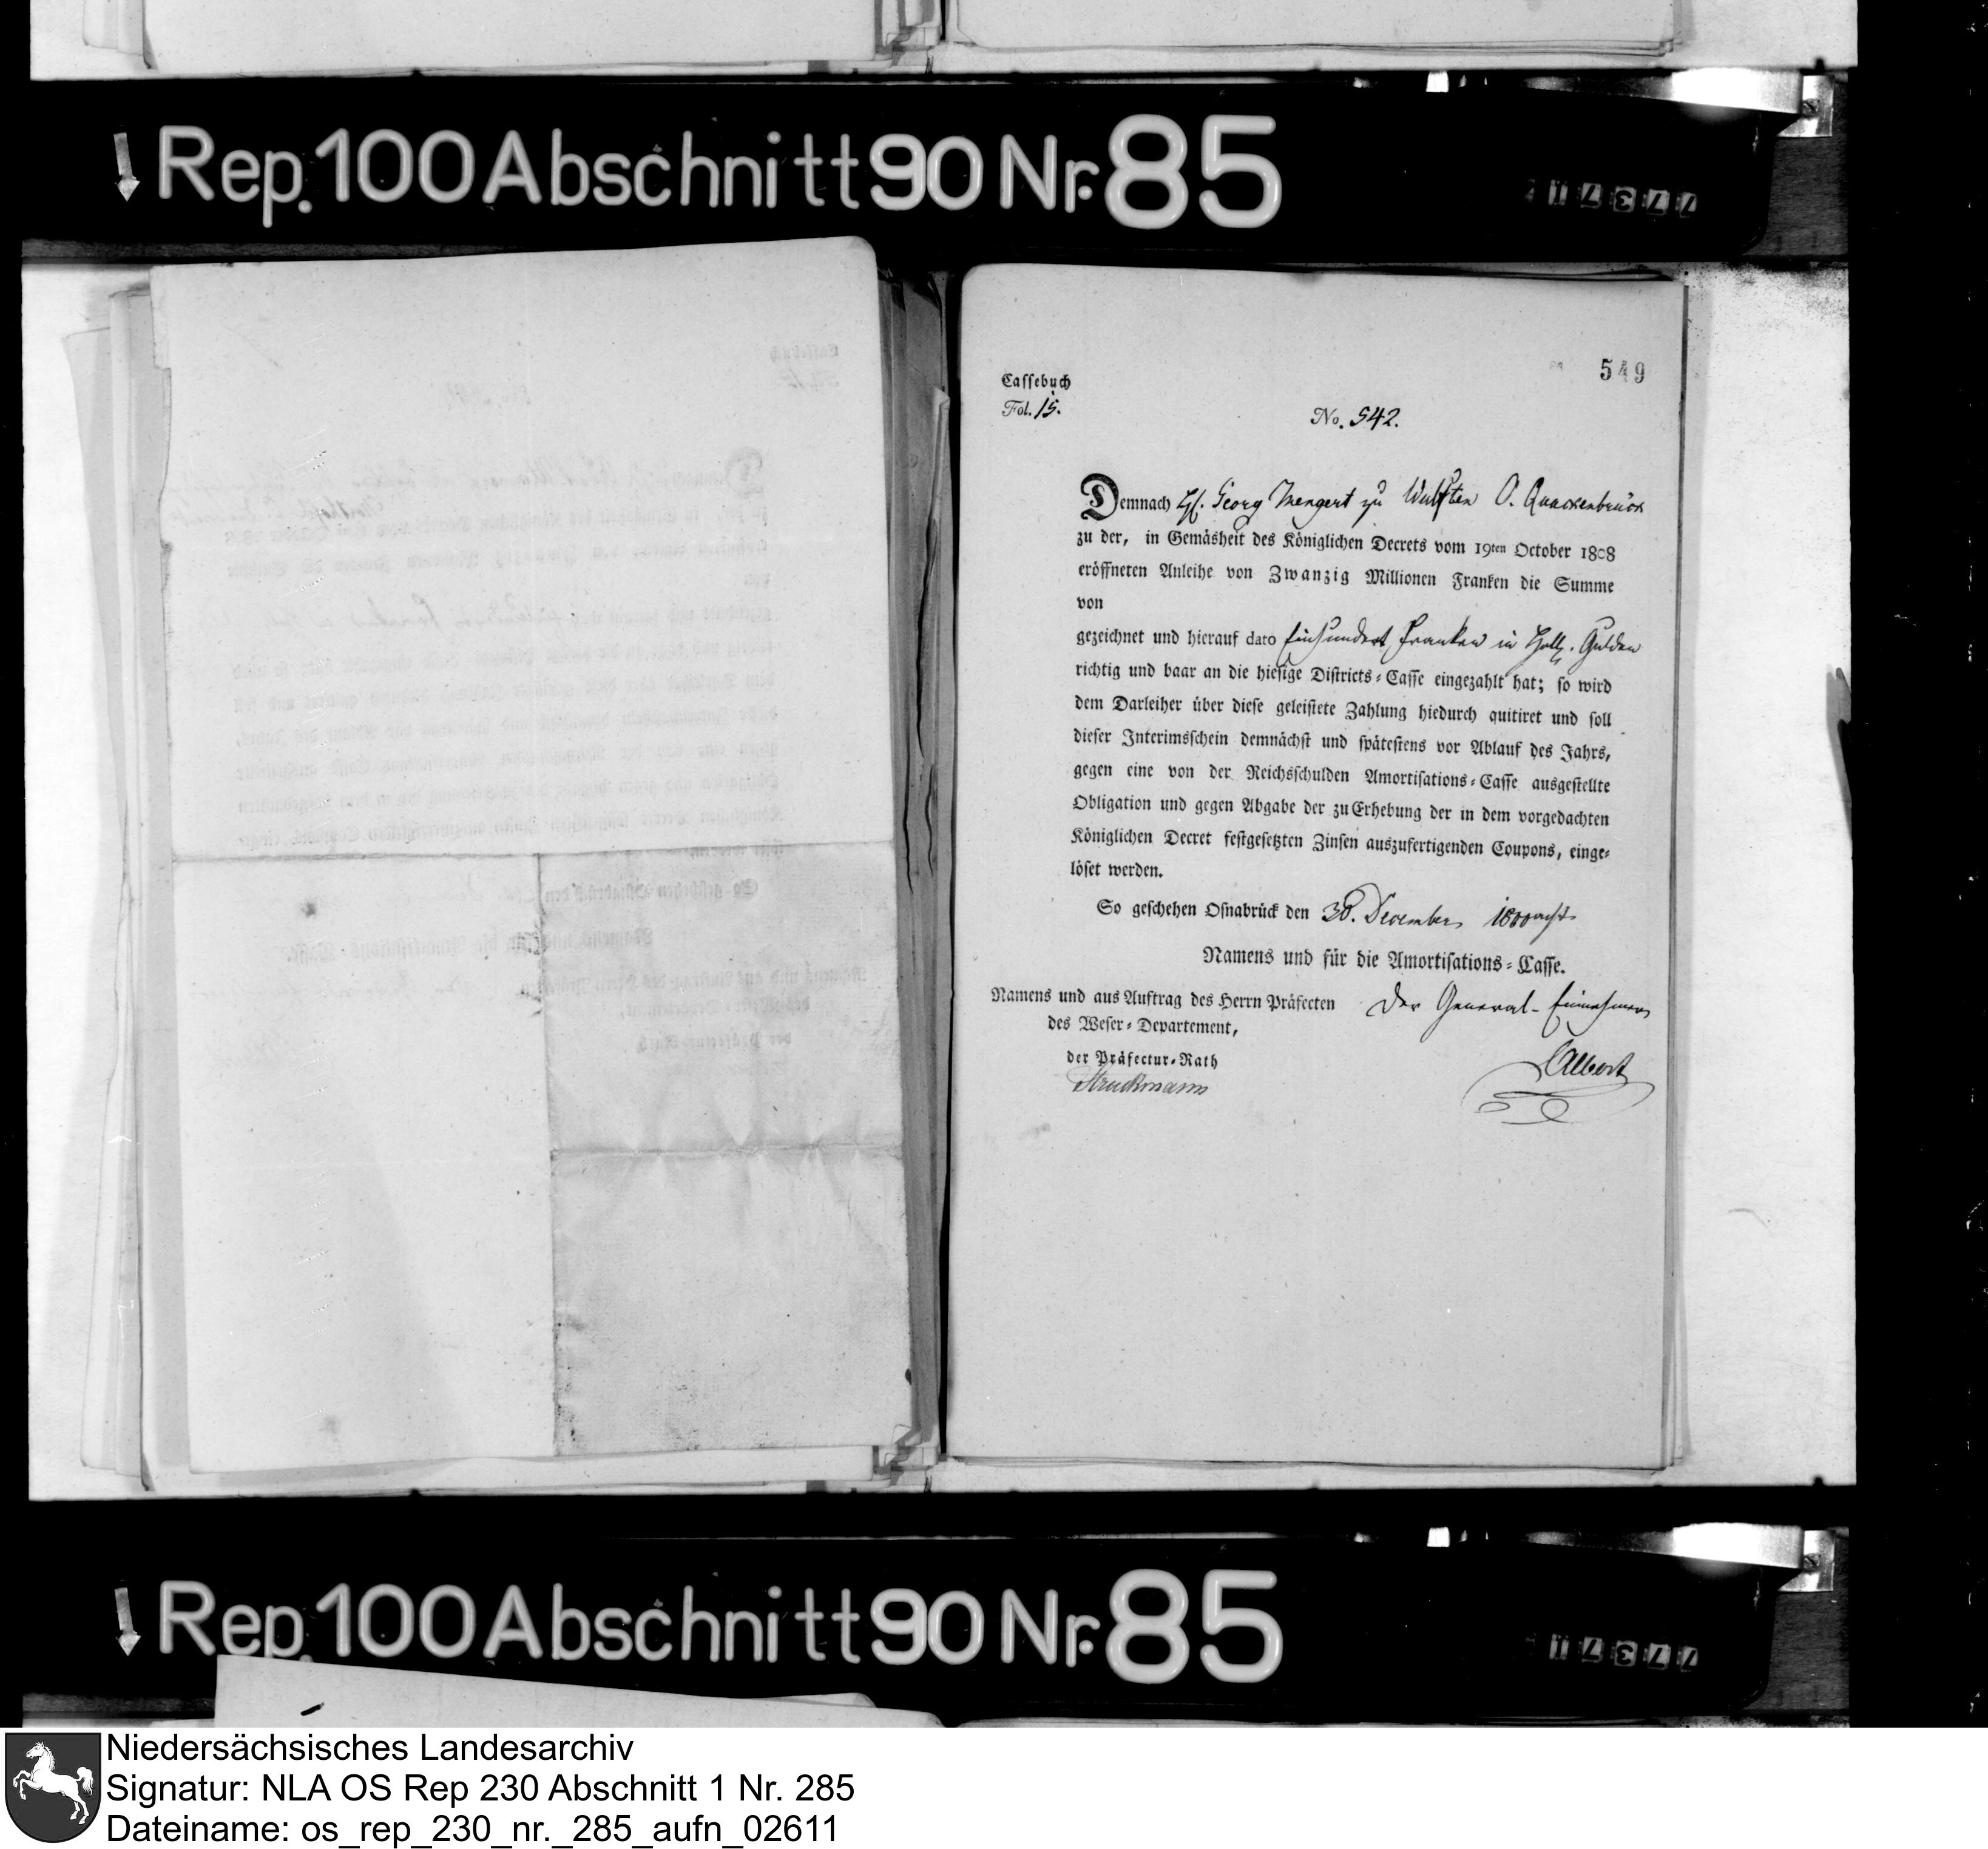 Rep.100 Abschnitt 90 Nr. 85
549
Cassebuch
Fol. 15.
No. 542.
Demnach H. Georg Mengert zu Wulften D. Quackenbrück
zu der, in Gemäsheit des Königlichen Decrets vom 19ten October 1808
eröffneten Anleihe von Zwanzig Millionen Franken die Summe
von
gezeichnet und hierauf dato Einhundert Franken in Holl. Gulden
richtig und baar an die hiesige Districts-Casse eingezahlt hat; so wird
dem Darleiher über diese geleistete Zahlung hiedurch quitiret und soll
dieser Interimsschein demnächst und spätestens vor Ablauf des Jahrs,
gegen eine von der Reichsschulden Amortisations-Casse ausgestellte
Obligation und gegen Abgabe der zu Erhebung der in dem vorgedachten
Königlichen Decret festgesetzten Zinsen auszufertigenden Coupons, einge-
löset werden.
So geschehen Osnabrück den 30. December 1800 acht
Namens und für die Amortisations-Casse.
Namens und aus Auftrag des Herrn Präfecten Der General-Einnehmer
des Weser-Departement,
der Präfectur-Rath
Struckmann Albert
Rep.100 Abschnitt 90 Nr. 85
Niedersächsisches Landesarchiv
Signatur: NLA OS Rep 230 Abschnitt 1 Nr. 285
Dateiname: os_rep_230_nr._285_aufn_02611